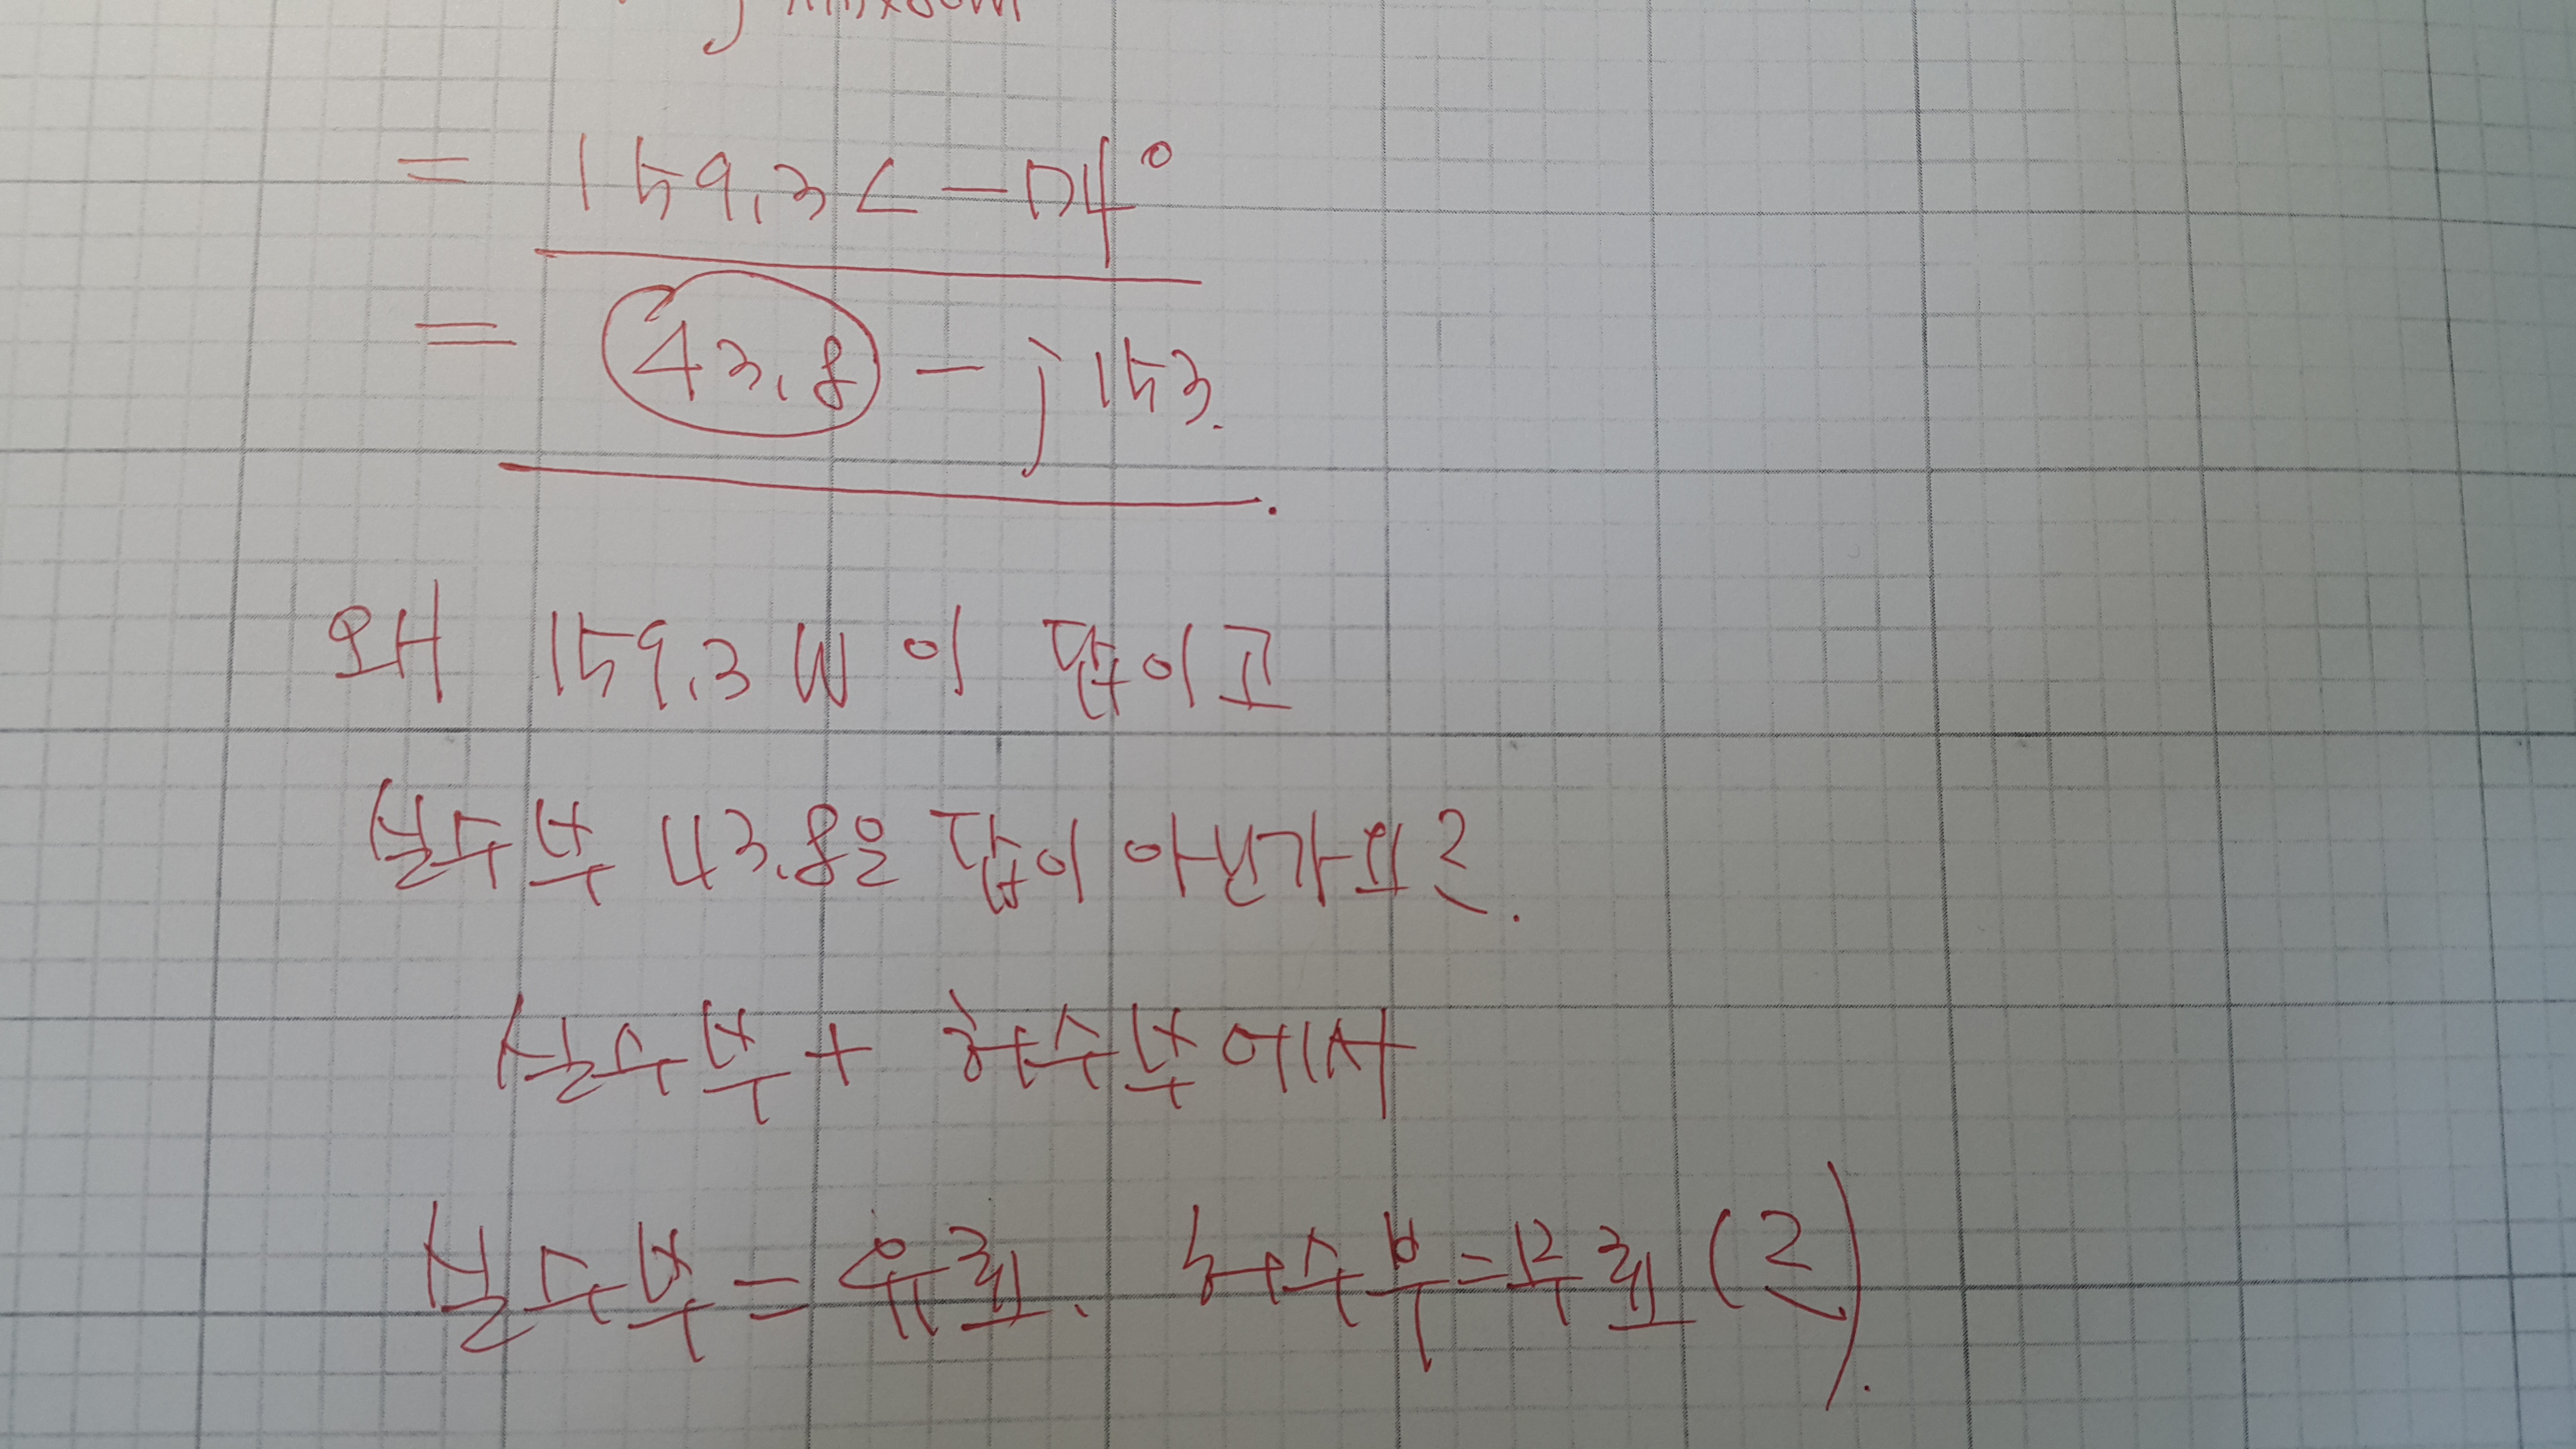 = 159.3∠-74°
= 43.8 - j153.
왜 159.3W이 답이고
실수부 43.8은 답이 아닌가요?
실수부 + 허수부에서
실수부=유효. 허수부=무효(?).